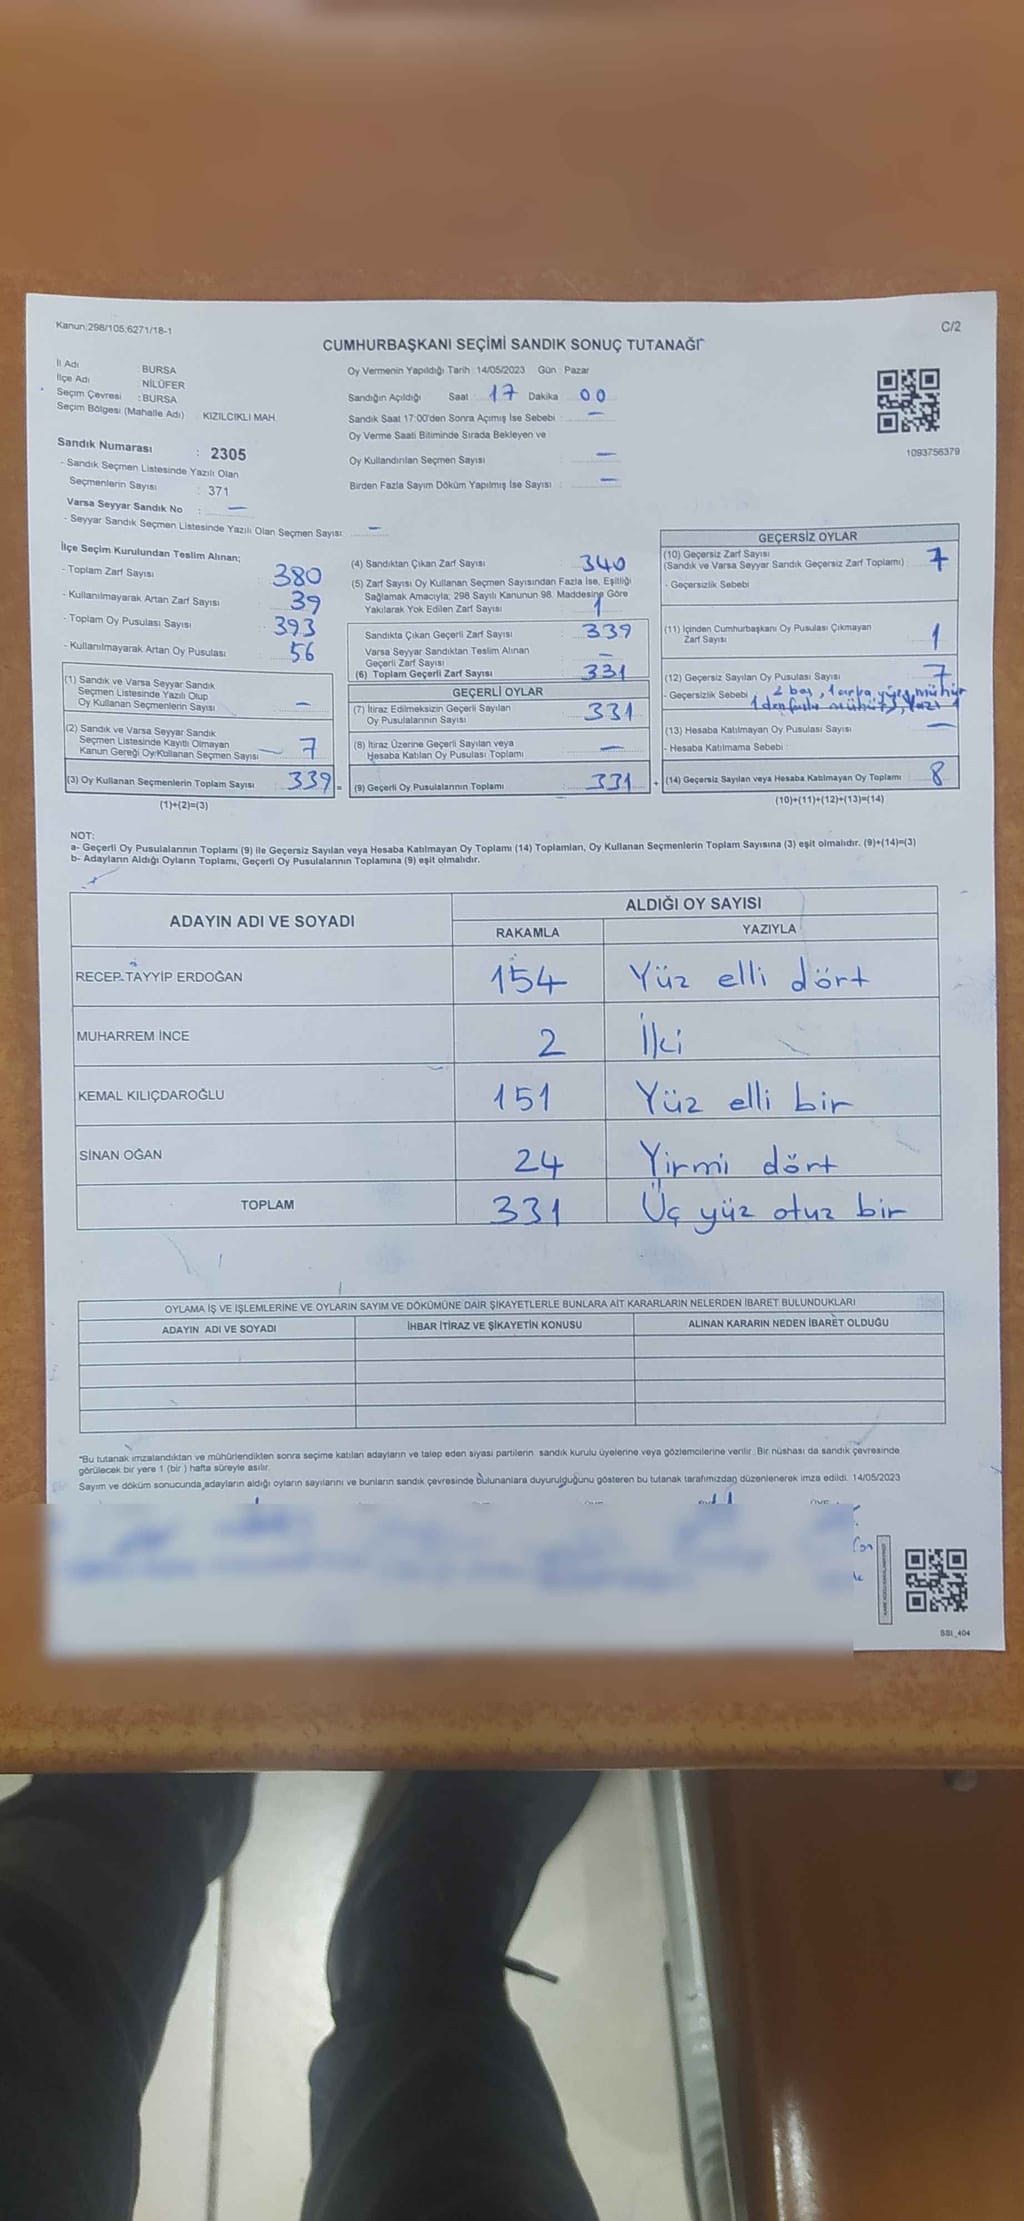 Kanun;298/105;6271/18-1
C/2
CUMHURBAŞKANI SEÇİMİ SANDIK SONUÇ TUTANAĞI
İl Adı : BURSA
İlçe Adı : NİLÜFER
Seçim Çevresi : BURSA
Seçim Bölgesi (Mahalle Adı) KIZILCIKLI MAH.
Sandık Numarası : 2305
- Sandık Seçmen Listesinde Yazılı Olan
Seçmenlerin Sayısı : 371
Varsa Seyyar Sandık No : —
- Seyyar Sandık Seçmen Listesinde Yazılı Olan Seçmen Sayısı: —
Oy Vermenin Yapıldığı Tarih : 14/05/2023 Gün : Pazar
Sandığın Açıldığı Saat 17 Dakika 00
Sandık Saat 17:00'den Sonra Açımış İse Sebebi : —
Oy Verme Saati Bitiminde Sırada Bekleyen ve
Oy Kullandırılan Seçmen Sayısı —
Birden Fazla Sayım Döküm Yapılmış İse Sayısı : —
1093756379
İlçe Seçim Kurulundan Teslim Alınan;
- Toplam Zarf Sayısı : 380
- Kullanılmayarak Artan Zarf Sayısı : 39
- Toplam Oy Pusulası Sayısı : 393
- Kullanılmayarak Artan Oy Pusulası : 56
(1) Sandık ve Varsa Seyyar Sandık
Seçmen Listesinde Yazılı Olup
Oy Kullanan Seçmenlerin Sayısı —
(2) Sandık ve Varsa Seyyar Sandık
Seçmen Listesinde Kayıtlı Olmayan
Kanun Gereği Oy Kullanan Seçmen Sayısı — 7
(3) Oy Kullanan Seçmenlerin Toplam Sayısı 339 =
(1)+(2)=(3)
(4) Sandıktan Çıkan Zarf Sayısı 340
(5) Zarf Sayısı Oy Kullanan Seçmen Sayısından Fazla İse, Eşitliği
Sağlamak Amacıyla; 298 Sayılı Kanunun 98. Maddesine Göre
Yakılarak Yok Edilen Zarf Sayısı 1
Sandıkta Çıkan Geçerli Zarf Sayısı 339
Varsa Seyyar Sandıktan Teslim Alınan
Geçerli Zarf Sayısı —
(6) Toplam Geçerli Zarf Sayısı 331
GEÇERLİ OYLAR
(7) İtiraz Edilmeksizin Geçerli Sayılan
Oy Pusulalarının Sayısı 331
(8) İtiraz Üzerine Geçerli Sayılan veya
Hesaba Katılan Oy Pusulası Toplamı —
(9) Geçerli Oy Pusulalarının Toplamı 331 +
GEÇERSİZ OYLAR
(10) Geçersiz Zarf Sayısı
(Sandık ve Varsa Seyyar Sandık Geçersiz Zarf Toplamı) 7
- Geçersizlik Sebebi
(11) İçinden Cumhurbaşkanı Oy Pusulası Çıkmayan
Zarf Sayısı 1
(12) Geçersiz Sayılan Oy Pusulası Sayısı 7
- Geçersizlik Sebebi 2 boş, 1 arka yüz mühür
1 den fazla mühür 3, Yazı 1
(13) Hesaba Katılmayan Oy Pusulası Sayısı —
- Hesaba Katılmama Sebebi :
(14) Geçersiz Sayılan veya Hesaba Katılmayan Oy Toplamı 8
(10)+(11)+(12)+(13)=(14)
NOT:
a- Geçerli Oy Pusulalarının Toplamı (9) ile Geçersiz Sayılan veya Hesaba Katılmayan Oy Toplamı (14) Toplamları, Oy Kullanan Seçmenlerin Toplam Sayısına (3) eşit olmalıdır. (9)+(14)=(3)
b- Adayların Aldığı Oyların Toplamı, Geçerli Oy Pusulalarının Toplamına (9) eşit olmalıdır.
ADAYIN ADI VE SOYADI
ALDIĞI OY SAYISI
RAKAMLA YAZIYLA
RECEP TAYYİP ERDOĞAN 154 Yüz elli dört
MUHARREM İNCE 2 İki
KEMAL KILIÇDAROĞLU 151 Yüz elli bir
SİNAN OĞAN 24 Yirmi dört
TOPLAM 331 Üç yüz otuz bir
OYLAMA İŞ VE İŞLEMLERİNE VE OYLARIN SAYIM VE DÖKÜMÜNE DAİR ŞİKAYETLERLE BUNLARA AİT KARARLARIN NELERDEN İBARET BULUNDUKLARI
ADAYIN ADI VE SOYADI İHBAR İTİRAZ VE ŞİKAYETİN KONUSU ALINAN KARARIN NEDEN İBARET OLDUĞU
"Bu tutanak imzalandıktan ve mühürlendikten sonra seçime katılan adayların ve talep eden siyasi partilerin sandık kurulu üyelerine veya gözlemcilerine verilir. Bir nüshası da sandık çevresinde
görülecek bir yere 1 (bir ) hafta süreyle asılır.
Sayım ve döküm sonucunda adayların aldığı oyların sayılarını ve bunların sandık çevresinde bulunanlara duyurulduğunu gösteren bu tutanak tarafımızdan düzenlenerek imza edildi. 14/05/2023
SSI_404